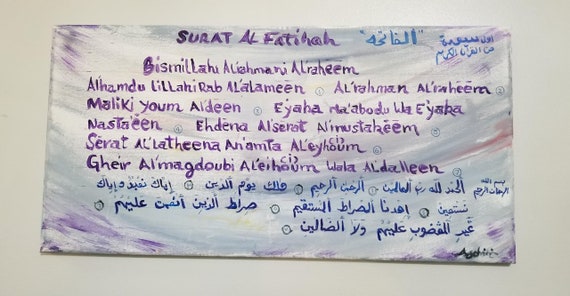 SURAT AL Fatihah "الفاتحه"
Bismillahi Alrahmani Alraheem
Alhamdu Lillahi Rab Alalameen Al'rahman Al'raheem
Maliki Youm Aldeen Eyaka Na'abudu Wa Eyaka
Nasta'een Ehdena Alserat Almustaheem
Serat Al'Latheena An'amta Al'eyhoum
Gheir Al'magdoubi Al'eihoum Wala Al'dalleen
بسم الله الرحمان الرحيم الحمد لله رب العالمين الرحمن الرحيم مالك يوم الدين إياك نعبد و إياك
نستعين إهدنا الصراط المستقيم صراط الذين أنعمت عليهم
غير المغضوب عليهم ولا الضالين